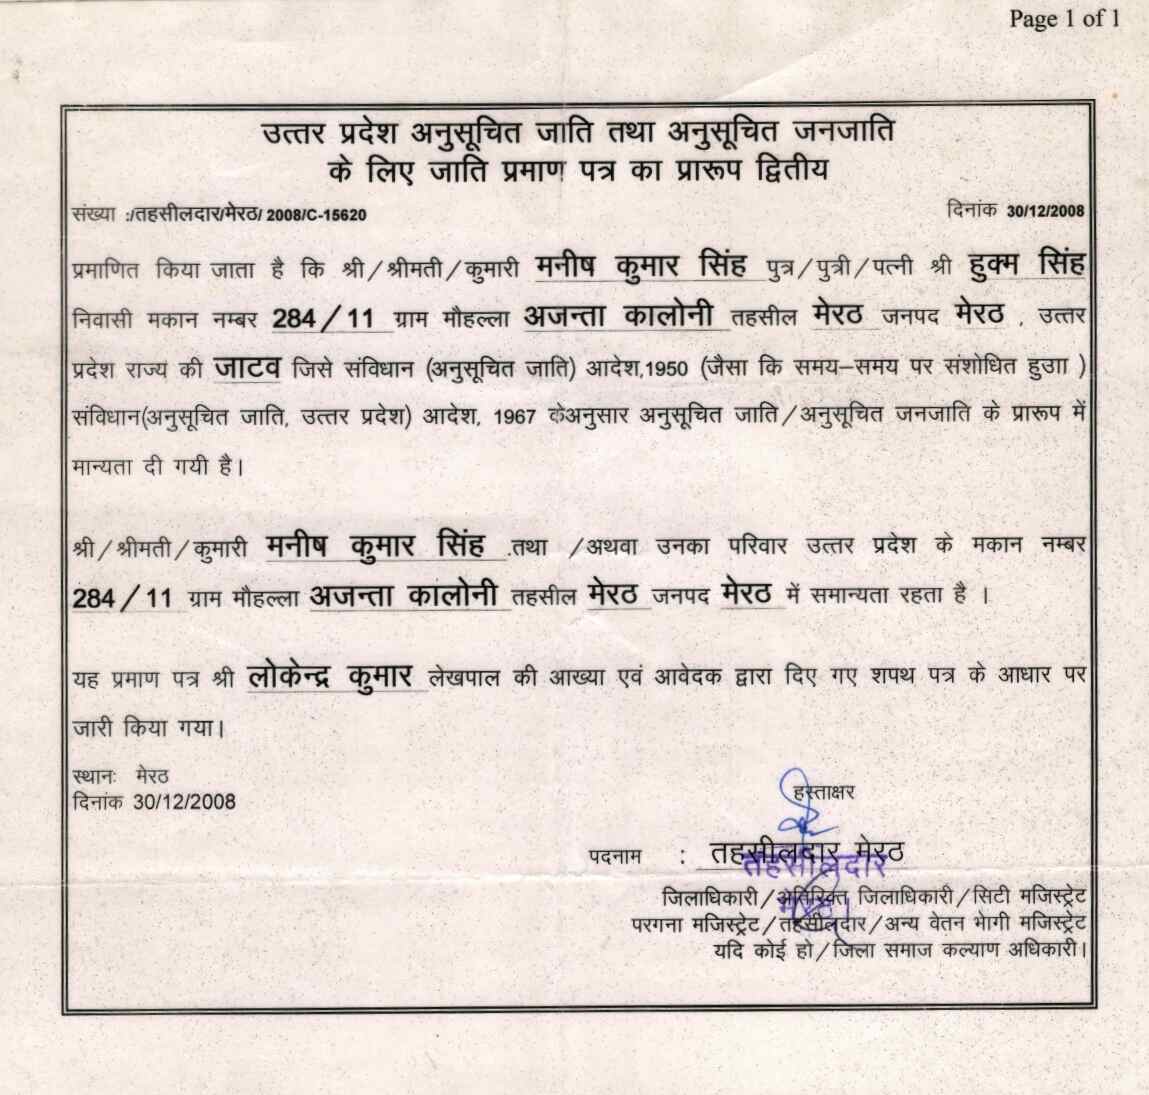 Page 1 of 1
उत्तर प्रदेश अनुसूचित जाति तथा अनुसूचित जनजाति
के लिए जाति प्रमाण पत्र का प्रारूप द्वितीय
संख्या :/तहसीलदार/मेरठ/ 2008/C-15620 दिनांक 30/12/2008
प्रमाणित किया जाता है कि श्री/श्रीमती/कुमारी मनीष कुमार सिंह पुत्र/पुत्री/पत्नी श्री हुक्म सिंह
निवासी मकान नम्बर 284/11 ग्राम मौहल्ला अजन्ता कालोनी तहसील मेरठ जनपद मेरठ , उत्तर
प्रदेश राज्य की जाटव जिसे संविधान (अनुसूचित जाति) आदेश,1950 (जैसा कि समय–समय पर संशोधित हुआ )
संविधान(अनुसूचित जाति, उत्तर प्रदेश) आदेश, 1967 केअनुसार अनुसूचित जाति/अनुसूचित जनजाति के प्रारूप में
मान्यता दी गयी है।
श्री/श्रीमती/कुमारी मनीष कुमार सिंह .तथा /अथवा उनका परिवार उत्तर प्रदेश के मकान नम्बर
284/11 ग्राम मौहल्ला अजन्ता कालोनी तहसील मेरठ जनपद मेरठ में समान्यता रहता है ।
यह प्रमाण पत्र श्री लोकेन्द्र कुमार लेखपाल की आख्या एवं आवेदक द्वारा दिए गए शपथ पत्र के आधार पर
जारी किया गया।
स्थानः मेरठ
दिनांक 30/12/2008
हस्ताक्षर
पदनाम : तहसीलदार मेरठ
तहसीलदार
मेरठ।
जिलाधिकारी/अतिरिक्त जिलाधिकारी/सिटी मजिस्ट्रेट
परगना मजिस्ट्रेट/तहसीलदार/अन्य वेतन भोगी मजिस्ट्रेट
यदि कोई हो/जिला समाज कल्याण अधिकारी।